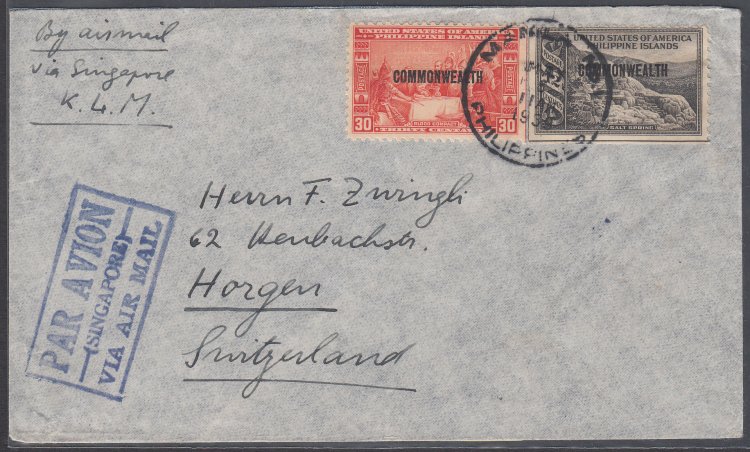 By airmail
via Singapore
K.L.M.
UNITED STATES OF AMERICA
PHILIPPINE ISLANDS
COMMONWEALTH
30 BLOOD COMPACT 30
THIRTY CENTAVOS
UNITED STATES OF AMERICA
PHILIPPINE ISLANDS
COMMONWEALTH
SALT SPRING
MANILA
PHILIPPINES
PAR AVION
(SINGAPORE)
VIA AIR MAIL
Herrn F. Zwingli
62
Horgen
Switzerland